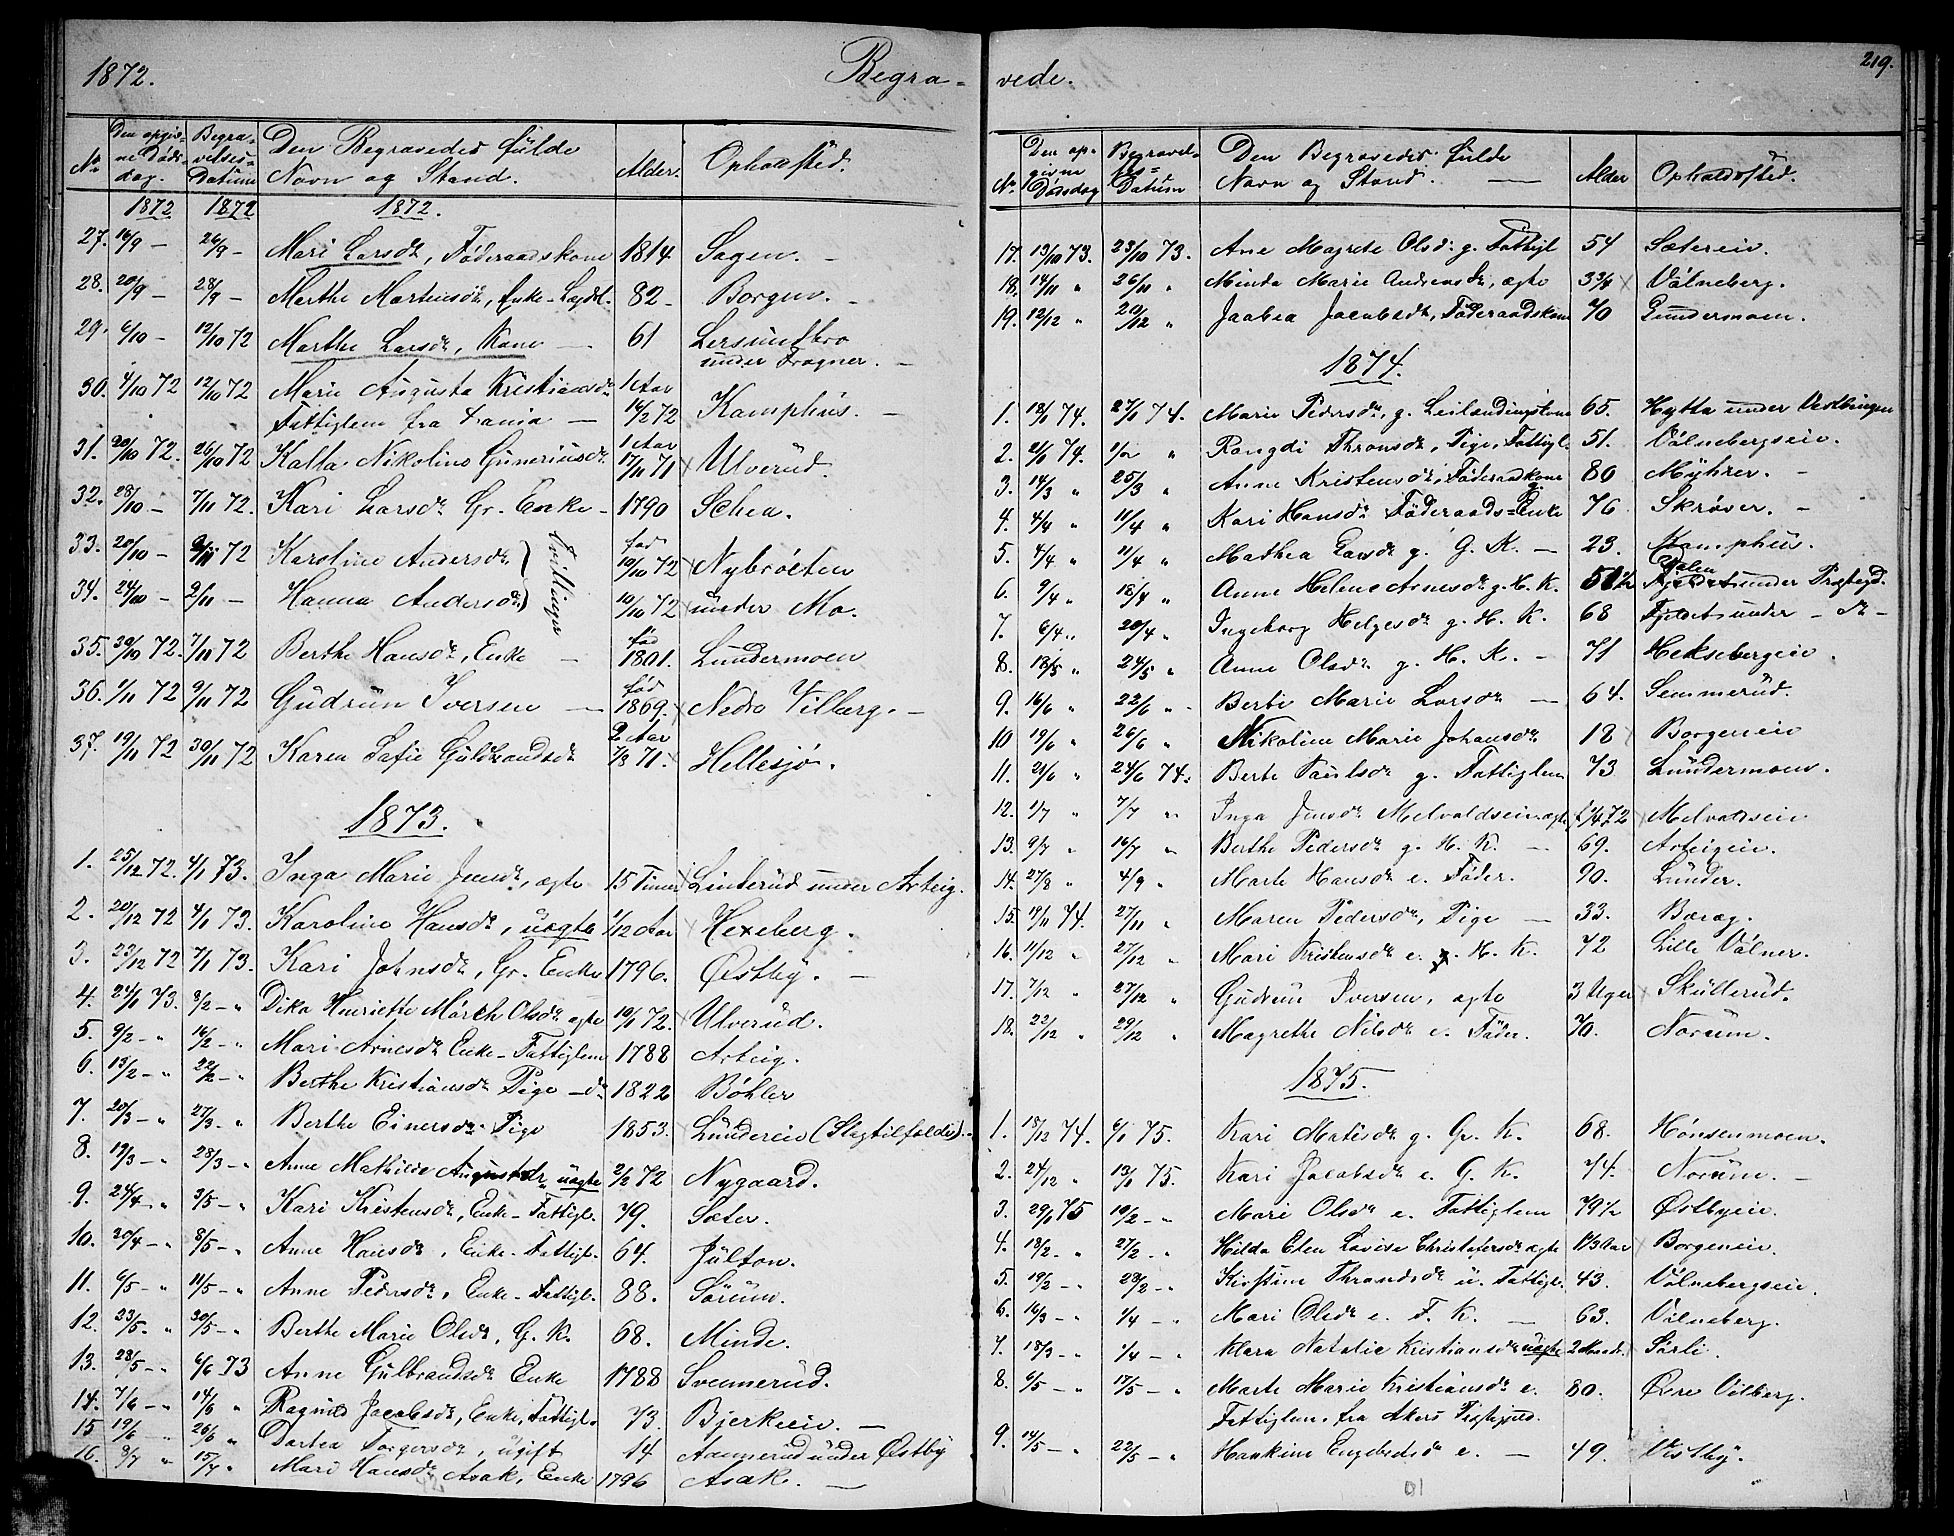 1872. Begra-
No. Den opgivne Dødsdag. Begravelses-Datum Den Begravedes fulde Navn og Stand. Alder. Opholdssted.
1872 1872 1872.
27. 16/9 — 26/9 — Mari Larsdr, Føderaadskone 1814. Sagen. —
28. 20/9 — 28/9 — Marthe Martinsdr, Enke- 82 - Borgen. —
29. 6/10 — 12/10 72 Marthe Larsdr, Kone — 61 Lersundbro
under Frogner. —
30. 4/10 72 12/10 72 Marie Augusta Kristiansdr 1 Aar
Fattiglem fra — 16/2 72 Kamphus. —
31. 20/10 72. 26/10 72 Kalla Nikoline Guneriusdr 1 Aar
17/11 71 Ulverud.
32. 28/10 — 7/11 72. Kari Larsdr Gr. Enke - 1790 Schea.
33. 20/10 — 2/11 72 Karoline Andersdr Tvillinger fød
10/10 72 Nybrøten
34. 24/10 — 2/11 — Hanna Andersdr 10/10 72 under Mo.
35. 30/10 72. 7/11 72 Berthe Hansdr, Enke — fød
1801. Lundermoen
36. 1/11 72 9/11 72 Gudrun Iversen — fød
1869. Nedre Vilberg. —
37. 19/11 72 30/11 72 Karen Sofie Guldbrandsdr 2 Aar
7/8 71. Hellesjø.
1873.
1. 25/12 72. 4/1 73. Inga Marie Jensdr, ægte 15 Timer Linderud under Arteig.
2. 20/12 72 4/1 73. Karoline Hansdr, uægte 1/12 Aar Hexeberg.
3. 23/12 72 7/1 73. Kari Johnsdr, Gr. Enke 1796. Østby. —
4. 24/1 73. 8/2 - " Dika Henriette Mörch Olsdr ægte 10/1 72. Ulverud.
5. 9/2 - " 16/2 - " Mari Arnesdr Enke - Fattiglem 1788 Arteig.
6. 13/2 - " 22/2 - " Berthe Kristiansdr Pige - do 1822 Bøhler
7. 20/3 - " 27/3 - " Berthe Einersdr Pige 1853. Lundereie (Slagtilfælde).
8. 19/3 - " 28/3 - " Anne Mathilde Augustdr, uægte 2/2 72 Nygaard.
9. 24/4 - " 3/5 - " Kari Kristensdr, Enke - Fattigl. 79. Sæter.
10. 30/4 - " 8/5 - " Anne Hansdr, Enke - Fattigl. 64. Jülton.
11. 6/5 - " 11/5 - " Anne Pedersdr, Enke - Fattigl. 88. Sørum.
12. 23/5. " 30/5 - " Berthe Marie Olsdr, G. K. 68. Minde.
13. 28/5 - " 6/6 73 Anne Gulbrandsdr Enke 1788 Svennerud.
14. 7/6 - " 14/6 " Ragnild Jacobsdr, Enke, Fattigl. 73. Bjerkeie. —
15 19/6 " 26/6 " Dorthea Torgersdr, ugift 14 Aamerud under Østby
16. 8/7 " 15/7 " Mari Hansdr Asak, Enke 1796 Asak. —
vede. 219.
No. Den opgivne Dødsdag Begravelses-Datum Den Begravedes fulde Navn og Stand. — Alder Opholdssted.
17. 13/10 73. 23/10 73. Ane Magrete Olsdr g. Fattigl 54 Sætereie.
18. 14/11 " 26/11 " Minda Marie Andreasdr, ægte 3 3/4 Válneberg.
19. 12/12 " 20/12 " Jacobea Jacobsdr, Føderaadskone 70 Lundermoen.
1874.
1. 18/1 74. 27/1 74. Marie Pedersdr, g. Leilændingskone 65. Hytta under Vestbingen
2. 21/1 74. 1/2 " Rangdi Thronsdr, Pige, Fattigl. 51. Válnebergseie.
3. 14/3 " 25/3 " Anne Kristensdr, Føderaadkone 80 Myhrer. —
4. 4/4 " 11/4 " Kari Hansdr Føderaads = Enke 76. Skrøver. —
5. 4/4 " 11/4 " Mathea Larsdr g. G. K. — 23. Kamphus.
6. 9/4 " 18/4 " Anne Helene Arnesdr g. H. K. 51 1/2 under Præstegd.
7. 6/4 " 20/4 " Ingeborg Helgesdr g. H. K. 68 Fjeldet under — do —
8. 18/5 " 24/5 " Anne Olsdr g. H. K. — 71 Heksebergeie.
9. 16/6 " 22/6 " Berte Marie Larsdr — 64. Semmerud.
10 19/6 " 26/6 " Nikoline Marie Johansdr 18 Borgeneie
11. 21/6 " 24/6 74. Berte Paulsdr g. Fattiglem 73 Lundermoen.
12. 1/7 " 7/7 " Inga Jensdr Melvaldseie ægte 1/4 72 Melvaldseie
13. 9/7 " 16/7 " Berthe Pedersdr g. H. K. — 69. Arteigeie.
14. 27/8 " 4/9 " Marte Hansdr e. Føder. 90. Lunder.
15. 19/11 74. 27/11 " Maren Pedersdr, Pige — 33. Beræg.
16. 11/12 " 27/12 " Mari Kristensdr e. H. K. 72 Lille Válner.
17. 7/12 " 27/12 " Gudrun Iversen, ægte 3 Uger Skullerud.
18. 22/12 " 29/12 " Magrethe Nilsdr e. Føder. 70. Norum.
1875.
1. 18/12 74. 6/1 75. Kari Matisdr g. Gr. K. 68. Hønsenmoen.
2. 24/12 " 13/1 75. Kari Jacobsdr e. G. K. 74. Norum. —
3. 29/1 75 10/2 - " Mari Olsdr e. Fattiglem 79 1/2 Østbyeie.
4. 18/2 " 27/2 - " Hilda Elen Lovise Christofersdr ægte 1 1/3 Aar Borgeneie.
5. 19/2 - " 28/2 - " Kirstine Thrandsdr u. Fattigl. 43. Válnebergseie.
6. 16/3 - " 1/4 - " Mari Olsdr e. F. K. — 63. Válneberg.
7. 18/3 - " 1/4 - " Klara Natalie Kristiansdr uægte 2 Maaned. Sørli.
8. 6/5 - " 17/5 - " Marte Marie Kristiansdr e. 80. Øvre Vilberg.
Fattiglem. fra Akers Prestegjeld.
9. 14/5 - " 22/5 - " Hankine Engebretsdr e. — 49. Vestby.